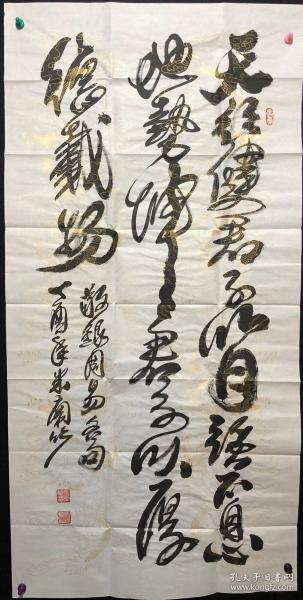 天行健君子以自强不息
地勢坤君子以厚
德載物
敬録周易名句
丁酉年
孔夫子旧书网